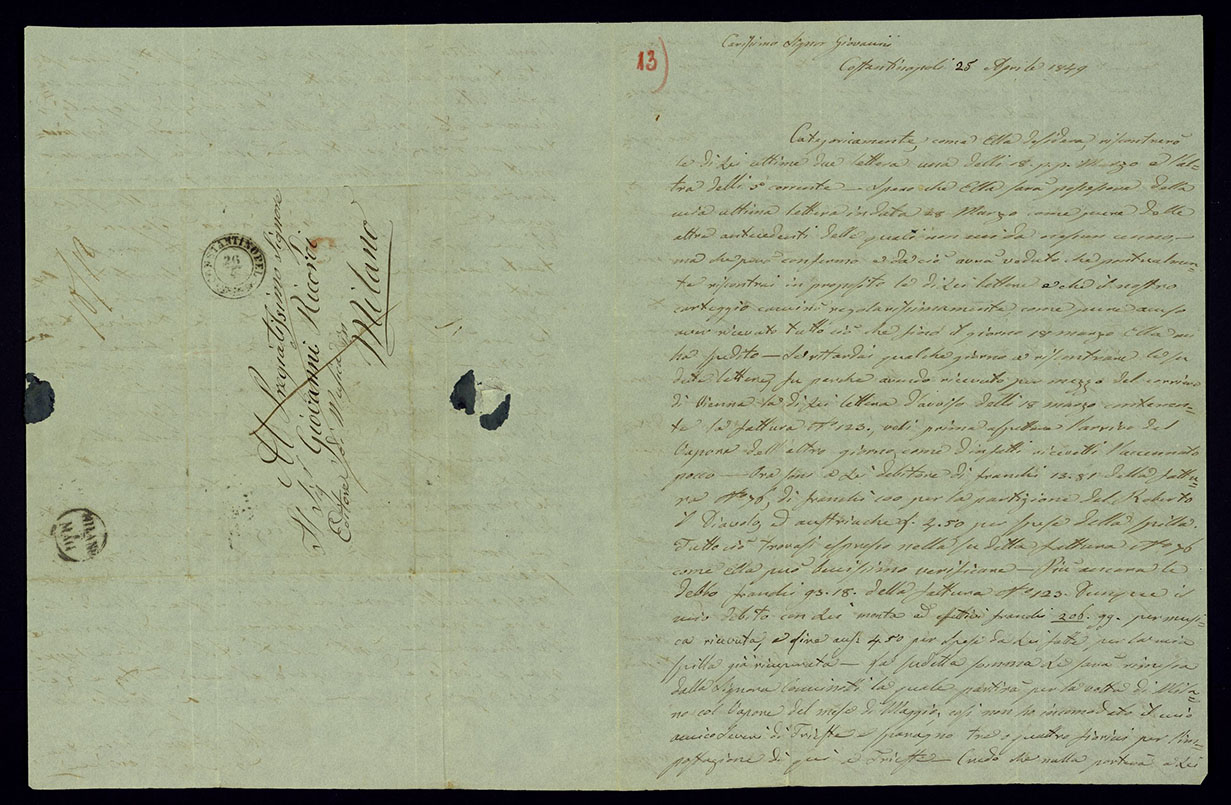 13)
Carissimo Signor Giovanni
Costantinopoli 25 Aprile 1849
Categoricamente, come Ella desidera, riscontrerò
le di Lei ultime due lettere una delli 18. p.p. Marzo e l'al-
tra delli 5 corrente — Spero che Ella sarà possessore della
mia ultima lettera in data 28 Marzo come pure delle
altre antecedenti delle quali non mi dà nessun cenno, —
ma che però confermo e da ciò avrà veduto che particolarmen-
te riscontrai in proposito le di Lei lettere e che il nostro
carteggio cammina regolarissimamente come pure accuso
aver ricevuto tutto ciò che sino il giorno 18 marzo Ella mi
ha spedito — Se ritardai qualche giorno a riscontrare le su
dette lettere, fu perchè avendo ricevuto per mezzo del corriere
di Vienna la di Lei lettera d'avviso delli 18 marzo contenen-
te la fattura N.º 123., volli prima aspettare l'arrivo del
Vapore dell'altro giorno, come difatti ricevetti l'accennato
pacco — Ora sono a Lei debitore di franchi 13.81 della fattu-
ra N.º 76, di franchi 100 per la partizione del Roberto
il Diavolo, d'austriache £. 4.50 per spese della spilla.
Tutto ciò trovasi espresso nella su detta fattura N.º 76
come Ella può benissimo verificare — Più ancora le
debbo franchi 93.18. della fattura N.º 123. Dunque il
mio debito con Lei monta ad effettivi franchi 206.99. per musi-
ca ricevuta, e lire aus. 4.50 per spese da Lei fatte per la mia
spilla già ricuperata — La sudetta somma Le sarà rimessa
dalla Signora la quale partirà per la volta di Mila-
no col Vapore del mese di Maggio, così non ho incomodato il mio
amico di Trieste e sparagno tre o quattro fiorini per l'im-
postazione di qui a Trieste — Credo che nulla porterà a Lei
CONSTANTINOPEL
26
Pregiatissimo Signore
Il Sig.r Giovanni Ricordi
Editore di Musica
Milano
MILANO
MAG